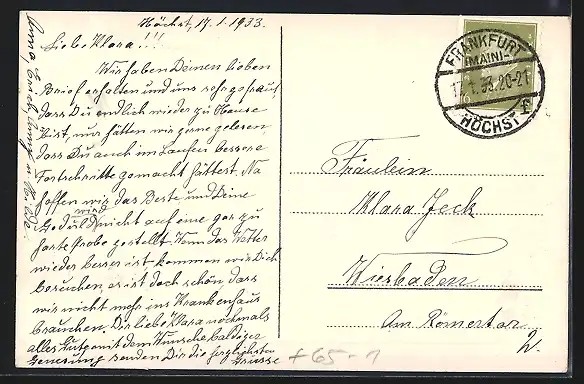 Höchst, 17.1.1933.
Liebe Klara!!!
Wir haben Deinen lieben
Brief erhalten und uns sehr gefreut,
dass Du endlich wieder zu Hause
bist, nur hätten wir gerne gelesen
dass Du auch im Laufen bessere
Fortschritte gemacht hättest. Na
hoffen wir das Beste und Deine
Geduld wird nicht auf eine gar zu
harte Probe gestellt. Wenn das Wetter
wieder besser ist kommen wir Dich
besuchen, es ist doch schön, dass
wir nicht mehr ins Krankenhaus
brauchen. Dir liebe Klara nochmals
alles Gute mit dem Wunsche baldiger
Genesung senden Dir die herzlichsten
Grüsse
Anna, Erich,
FRANKFURT
(MAIN)-
17.1.33.20-21
f
HÖCHST
Fräulein
Klara Jeck
Wiesbaden
Am Römertor
2.
+65-1